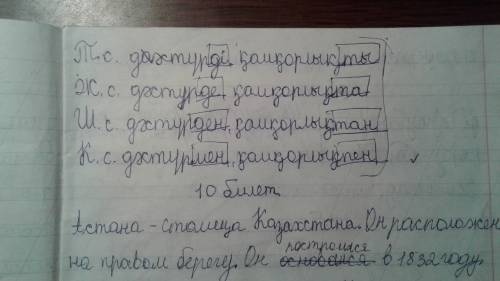 Т.с. дәстүрді, қамқорлықты
Ж.с. дәстүрде, қамқорлықта
Ш.с. дәстүрден, қамқорлықтан
К.с. дәстүрмен, қамқорлықпен
10 билет
Астана - столица Казахстана. Он расположен
построился
на правом берегу. Он основался в 1832 году.